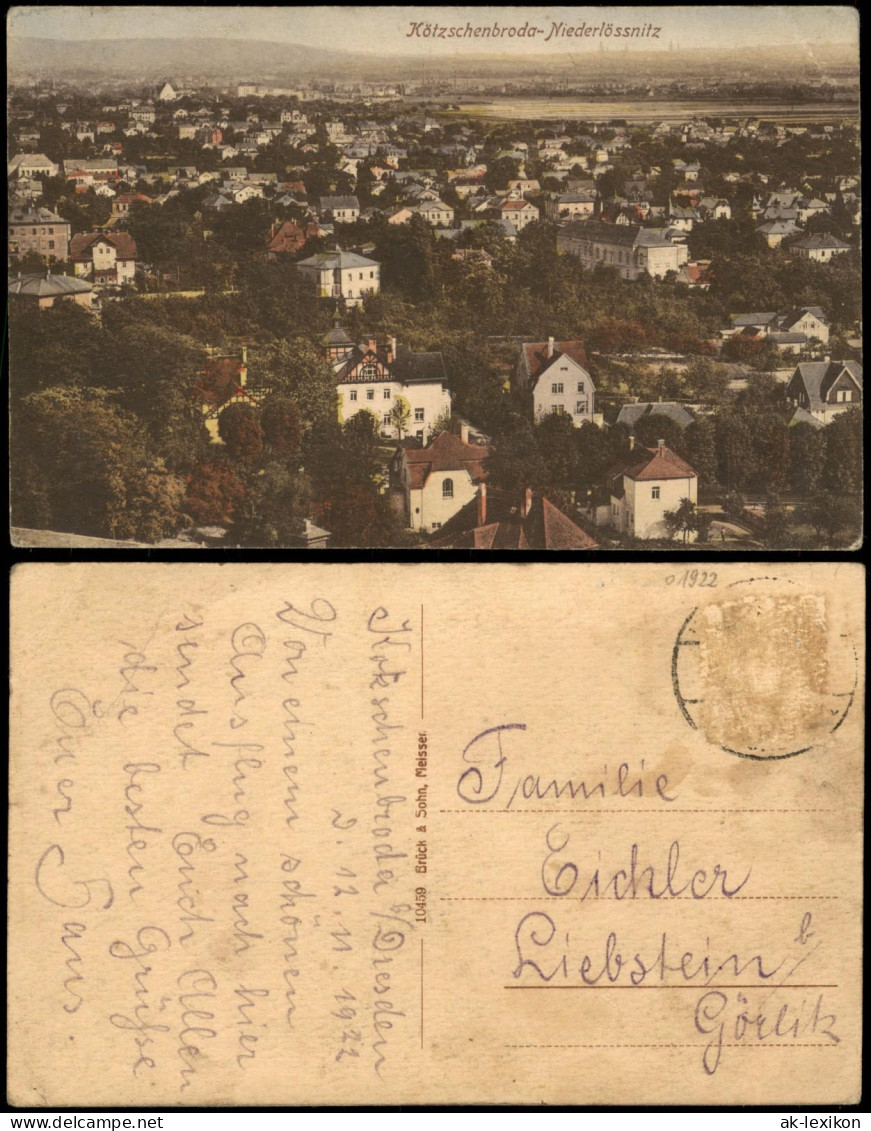 Kötzschenbroda-Niederlössnitz
0 1922
Kötschenbroda b/Dresden
D. 12. 11. 1922
Von einem schönen
Ausflug nach hier
sendet Euch Allen
die besten Grüße
Euer Hans.
10459 Brück & Sohn, Meissen
Familie
Eichler
Liebstein b/
Görlitz
www.ansichtskarten-lexikon.de
ak-lexikon